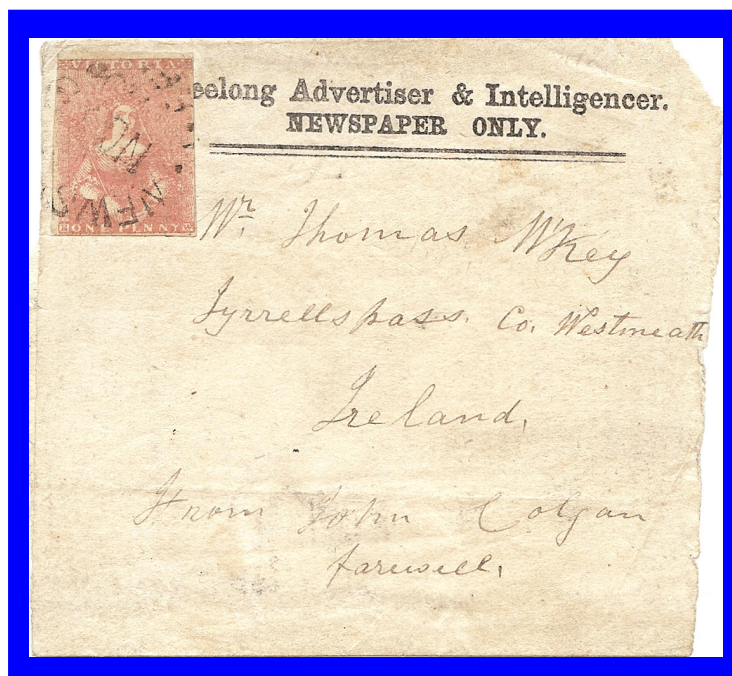 VICTORIA
ONE PENNY
eelong Advertiser & Intelligencer.
NEWSPAPER ONLY.
Mr. Thomas M'Key
Tyrrellspass. Co. Westmeath
Ireland,
From John Colgan
farewell,